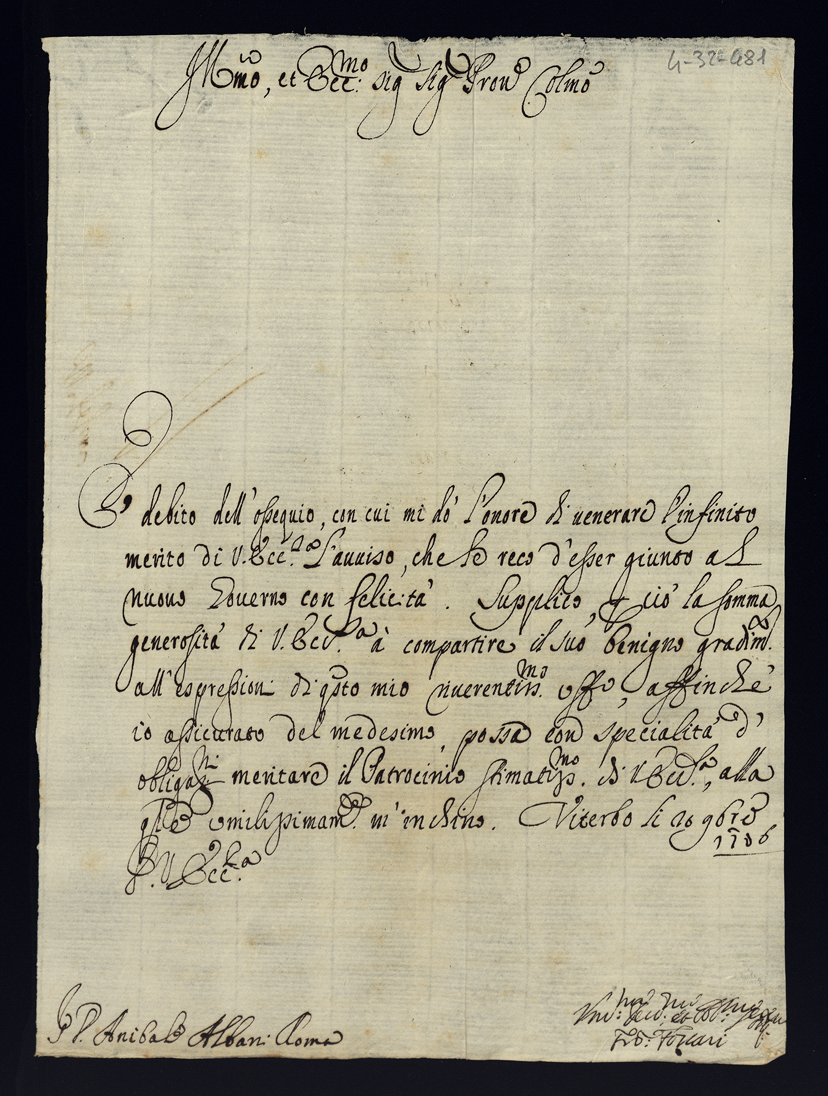 4-32-481
Ill.mo, et Ecc.mo Sig. Sig. Pron. Colmo
È debito dell'ossequio, con cui mi dò l'onore di venerare l'infinito
merito di V. Ecc.za l'avviso, che le reco d'esser giunto al
nuovo Governo con felicità. Supplico, p ciò la somma
generosità di V. Ecc.za à compartire il suo benigno gradim.to
all'espressioni di qsto mio riverentiss.mo uffo, affinche
io assicurato del medesimo, possa con specialità d'
obligaz.ni meritare il Patrocinio stimatiss.mo di V. Ecc.za, alla
qle umilissimam.e m'inchino. Viterbo li 20 9bre
1706
D. V. Ecc.za
S. D. Anibale Albani Roma